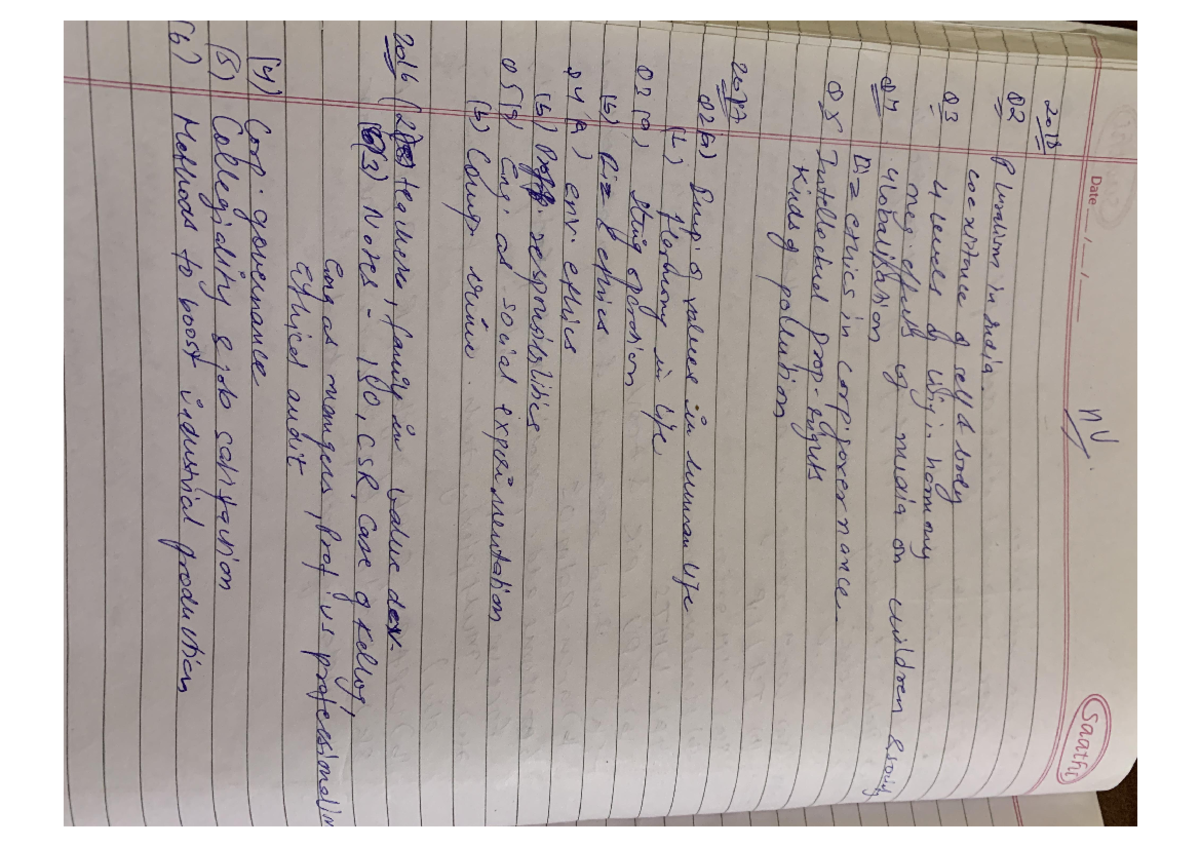 Date
nV
Saathi
2018
Q2 Pluralism in India
coexistence of self & body
Q3 4 levels of living in harmony
neg. effects of media on children & society
Q4 Globalisation
Biz ethics in corp. governance
Q5 Intellectual prop. rights
Kinds of pollution
2017
Q2(a) Imp. of values in human life
(b) harmony in life
Q3(a) operation
(b) Biz & ethics
Q4(a) env. ethics
(b) Prof. responsibilities
Q5(a) Eng. as social experimentation
(b) Comp. crime
2016 (2) teachers, family in value dev.
(3) Notes - IPO, CSR, Case of Kellog,
Eng as managers, Prof vs professionalism
Ethical audit
(4) Corp. governance
(5) Collegiality & job satisfaction
(6) Methods to boost industrial production